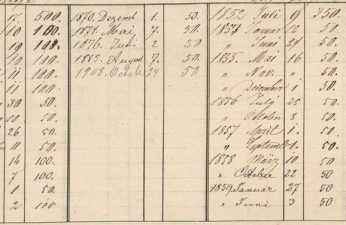 17 500. 1870. Dezemb 1. 50. 1852 Juli 9 750.
10 100 1874. März 7. 50. Januar 12 50.
19 100. 1876. Juli 2 50 " Juni 24 50.
10 100. 1885. August 7. 50. 1855. Mai 16 50.
11 100. 1908. October 24 50 " Nov. " 50.
11 100. " Dezember 1 50.
30 50. 1856 July 25 50.
10 50. " October 3 50.
26 50. 1857 April 1. 50.
11 50. " September 1. 50.
16 100. 1858 März 10 50
7 100. " October 22 50
1 50. 1859 Januar 27 50
2 100. " Juni 3 50